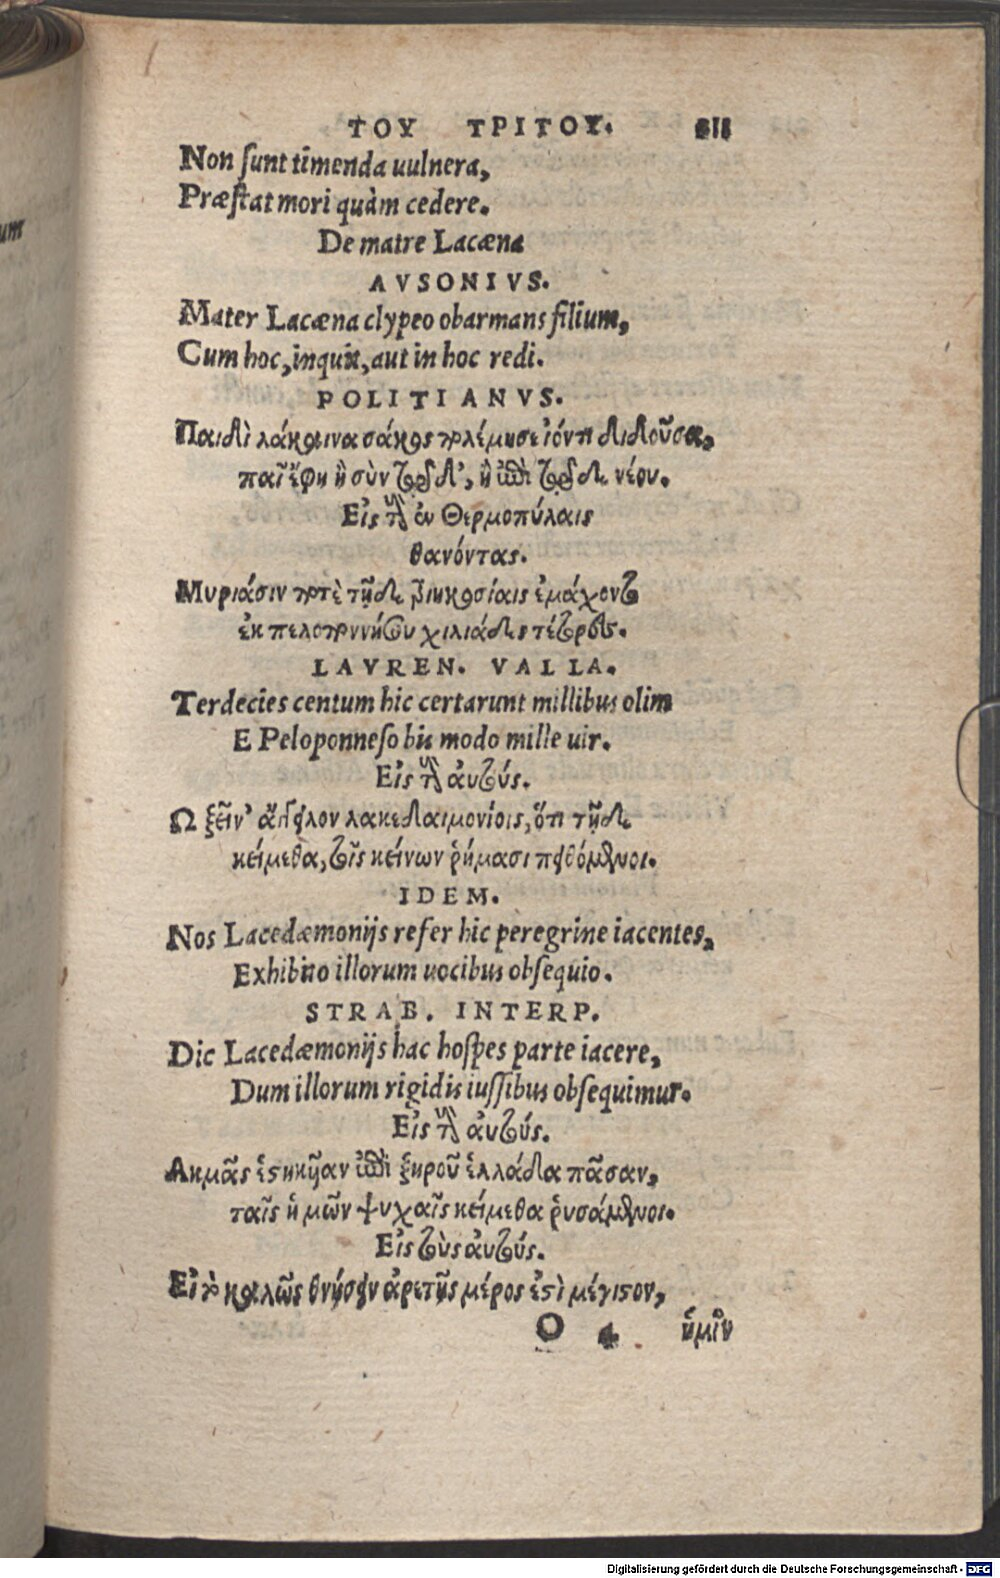 ΤΟΥ ΤΡΙΤΟΥ.
Non ſunt timenda uulnera,
Præſtat mori quàm cedere.
De matre Lacæna
AVSONIVS.
Mater Lacæna clypeo obarmans filium,
Cum hoc, inquit, aut in hoc redi.
POLITIANVS.
Παιδὶ λάκαινα σάκος πολέμησε ἰόντι διδοῦσα,
παῖ ἔφη ἢ σὺν τῷδ', ἢ ἐπὶ τῷδε νέου.
Εἰς τοὺς ἐν Θερμοπύλαις
θανόντας.
Μυριάσιν ποτὲ τῇδε τριηκοσίαις ἐμάχοντο
ἐκ πελοποννήσου χιλιάδες τέτορες.
LAVREN. VALLA.
Terdecies centum hic certarunt millibus olim
E Peloponneſo bis modo mille uir.
Εἰς τοὺς αὐτούς.
Ω ξεῖν' ἄγγειλον λακεδαιμονίοις, ὅτι τῇδε
κείμεθα, τοῖς κείνων ῥήμασι πειθόμενοι.
IDEM.
Nos Lacedæmonijs refer hic peregrine iacentes,
Exhibito illorum uocibus obſequio.
STRAB. INTERP.
Dic Lacedæmonijs hac hoſpes parte iacere,
Dum illorum rigidis iuſſibus obſequimur.
Εἰς τοὺς αὐτούς.
Ακμᾶς ἑστηκῆαν ἐπὶ ξηροῦ ἑλλάδα πᾶσαν,
ταῖς ἡμῶν ψυχαῖς κείμεθα ῥυσάμενοι.
Εἰς τοὺς αὐτούς.
Εἰ τὸ καλῶς θνήσκειν ἀρετῆς μέρος ἐστὶ μέγιστον,
O 4 ἡμῖν
um
Digitalisierung gefördert durch die Deutsche Forschungsgemeinschaft - DFG